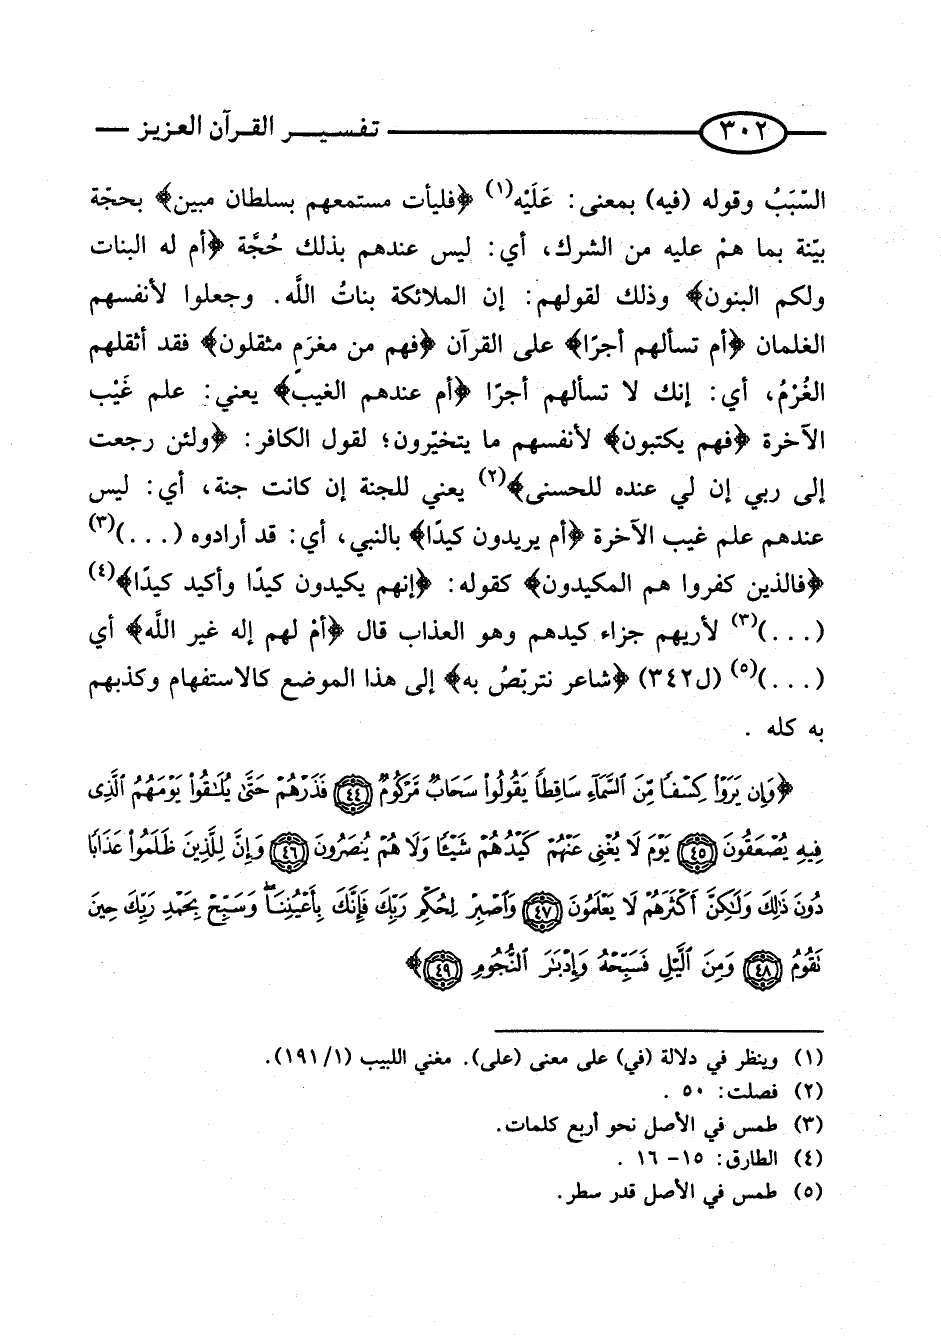 ٣٠٢ تفسير القرآن العزيز
السّبَبُ وقوله (فيه) بمعنى: عَلَيْه(١) ﴿فليأت مستمعهم بسلطان مبين﴾ بحجّة
بيّنة بما همْ عليه من الشرك، أي: ليس عندهم بذلك حُجَّة ﴿أم له البنات
ولكم البنون﴾ وذلك لقولهم: إن الملائكة بناتُ اللَّه. وجعلوا لأنفسهم
الغلمان ﴿أم تسألهم أجرًا﴾ على القرآن ﴿فهم من مغرَمٍ مثقلون﴾ فقد أثقلهم
الغُرْمُ، أي: إنك لا تسألهم أجرًا ﴿أم عندهم الغيب﴾ يعني: علم غَيْب
الآخرة ﴿فهم يكتبون﴾ لأنفسهم ما يتخيّرون؛ لقول الكافر: ﴿ولئن رجعت
إلى ربي إن لي عنده للحسنى﴾(٢) يعني للجنة إن كانت جنة، أي: ليس
عندهم علم غيب الآخرة ﴿أم يريدون كيدًا﴾ بالنبي، أي: قد أرادوه (...)(٣)
﴿فالذين كفروا هم المكيدون﴾ كقوله: ﴿إنهم يكيدون كيدًا وأكيد كيدًا﴾(٤)
(...)(٣) لأريهم جزاء كيدهم وهو العذاب قال ﴿أمْ لهم إله غير اللَّه﴾ أي
(...)(٥) (ل٣٤٢) ﴿شاعر نتربّصُ به﴾ إلى هذا الموضع كالاستفهام وكذبهم
به كله .
﴿وَإِن يَرَوْا۟ كِسْفًا مِّنَ ٱلسَّمَآءِ سَاقِطًا يَقُولُوا۟ سَحَابٌ مَّرْكُومٌ ٤٤ فَذَرْهُمْ حَتَّىٰ يُلَـٰقُوا۟ يَوْمَهُمُ ٱلَّذِى
فِيهِ يُصْعَقُونَ ٤٥ يَوْمَ لَا يُغْنِى عَنْهُمْ كَيْدُهُمْ شَيْـًٔا وَلَا هُمْ يُنصَرُونَ ٤٦ وَإِنَّ لِلَّذِينَ ظَلَمُوا۟ عَذَابًا
دُونَ ذَٰلِكَ وَلَـٰكِنَّ أَكْثَرَهُمْ لَا يَعْلَمُونَ ٤٧ وَٱصْبِرْ لِحُكْمِ رَبِّكَ فَإِنَّكَ بِأَعْيُنِنَا ۖ وَسَبِّحْ بِحَمْدِ رَبِّكَ حِينَ
نَقُومُ ٤٨ وَمِنَ ٱلَّيْلِ فَسَبِّحْهُ وَإِدْبَـٰرَ ٱلنُّجُومِ ٤٩﴾
(١) وينظر في دلالة (في) على معنى (على). مغني اللبيب (١/١٩١).
(٢) فصلت: ٥٠ .
(٣) طمس في الأصل نحو أربع كلمات.
(٤) الطارق: ١٥- ١٦ .
(٥) طمس في الأصل قدر سطر.